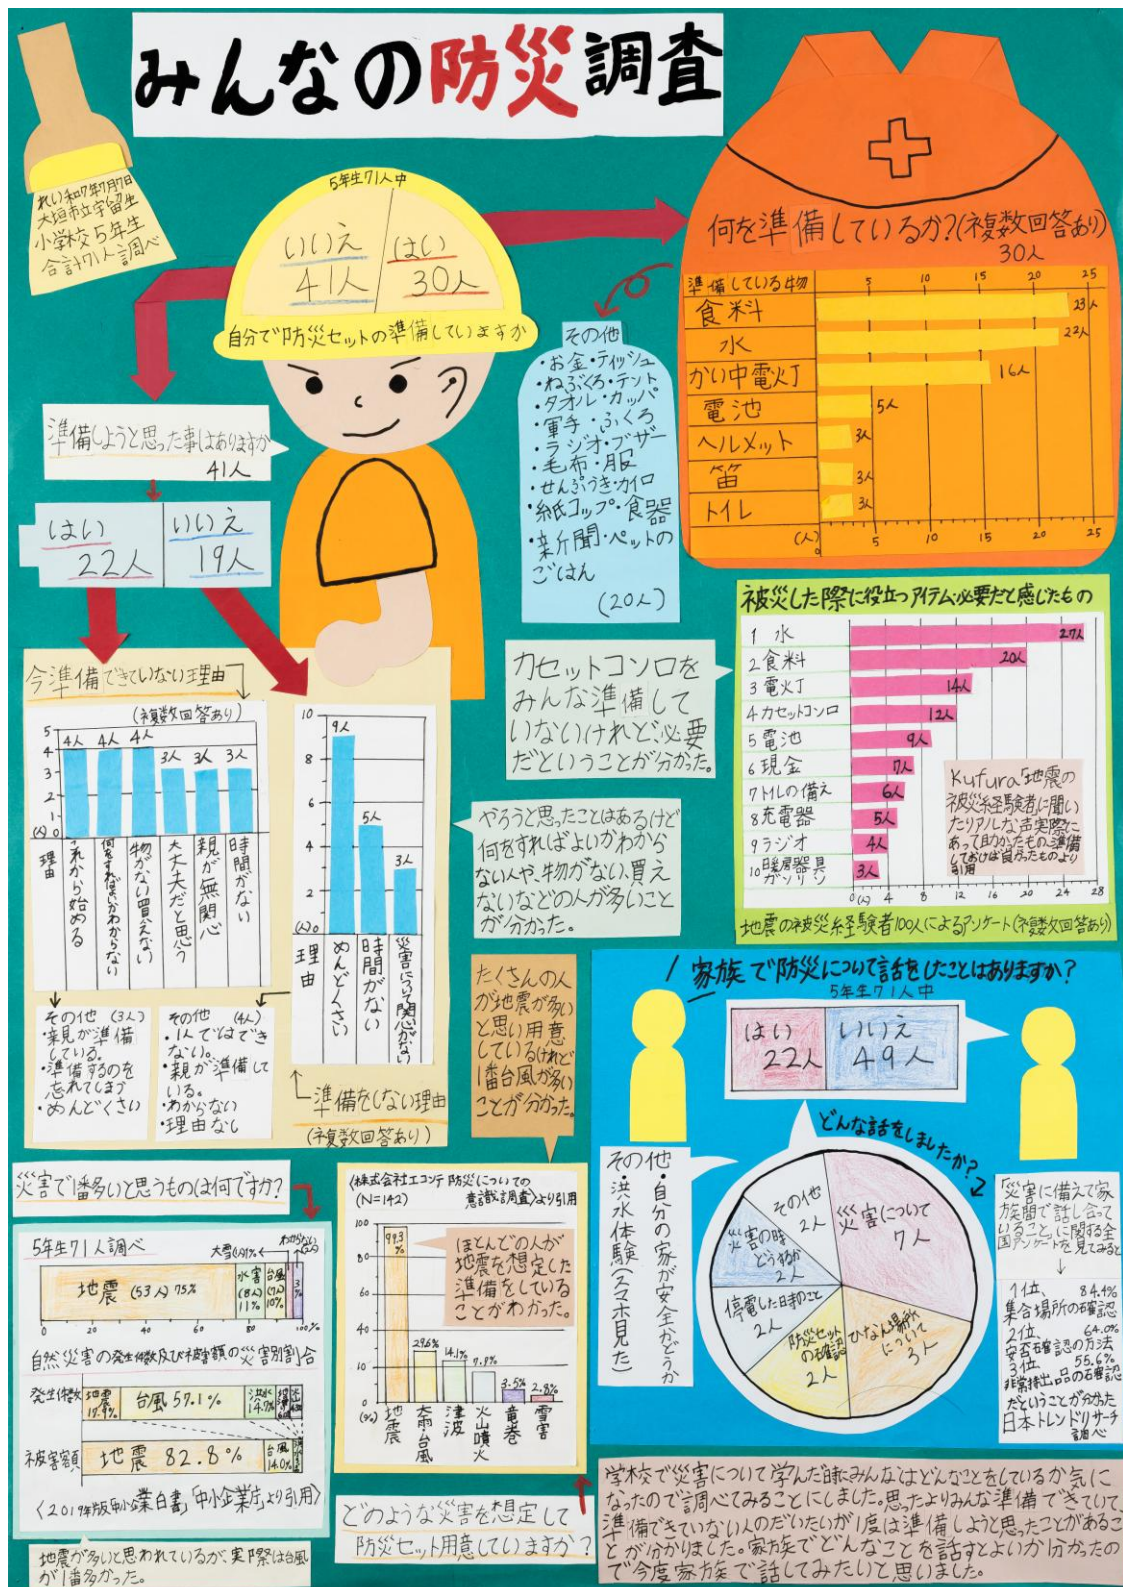 みんなの防災調査
れい和7年7月7日
大垣市立宇留生
小学校5年生
合計71人調べ
5年生71人中
いいえ
41人
はい
30人
自分で防災セットの準備していますか
何を準備しているか?(複数回答あり)
30人
準備している物
5 10 15 20 25
食料 23人
水 22人
かい中電灯 16人
電池 5人
ヘルメット 3人
笛 3人
トイレ 3人
(人) 0 5 10 15 20 25
その他
・お金・ティッシュ
・ねぶくろ・テント
・タオル・カッパ
・軍手・ふくろ
・ラジオ・ブザー
・毛布・服
・せんぷうき・カイロ
・紙コップ・食器
・新聞・ペットの
ごはん
(20人)
準備しようと思った事はありますか
41人
はい
22人
いいえ
19人
今準備できていない理由
(複数回答あり)
5
4
3
2
1
(人) 0
4人 4人 4人 3人 3人 3人
理由
これから始める
何をすればよいかわからない
物がない買えない
大丈夫だと思う
親が無関心
時間がない
その他 (3人)
・親が準備
している。
・準備するのを
忘れてしまう
・めんどくさい
その他 (4人)
・1人ではでき
ない。
・親が準備して
いる。
・わからない
・理由なし
10
8
6
4
2
(人) 0
9人 5人 3人
理由
めんどくさい
時間がない
災害について関心がない
準備をしない理由
(複数回答あり)
カセットコンロを
みんな準備して
いないけれど、必要
だということが分かった。
やろうと思ったことはあるけど
何をすればよいかわから
ない人や、物がない、買え
ないなどの人が多いこと
が分かった。
被災した際に役立つアイテム必要だと感じたもの
1 水 27人
2 食料 20人
3 電灯 14人
4 カセットコンロ 12人
5 電池 9人
6 現金 7人
7 トイレの備え 6人
8 充電器 5人
9 ラジオ 4人
10 暖房器具
ガソリン 3人
0(人) 4 8 12 16 20 24 28
Kufura「地震の
被災経験者に聞い
たリアルな声実際に
あって助かったもの、準備
しておけば良かったものより
引用
地震の被災経験者100人によるアンケート(複数回答あり)
たくさんの人
が地震が多い
と思い用意
しているけれど
1番台風が多い
ことが分かった。
家族で防災について話をしたことはありますか?
5年生71人中
はい
22人
いいえ
49人
どんな話をしましたか?
災害について
7人
ひなん場所
について
3人
防災セット
の確認
2人
停電した時のこと
2人
災害の時
どうするか
2人
その他
2人
その他
・自分の家が安全かどうか
・洪水体験(スマホ見た)
「災害に備えて家
族間で話し合って
いること」に関する全
国アンケートを見てみると
↓
1位、 84.4%
集合場所の確認
2位、 64.0%
安否確認の方法
3位、 55.6%
非常持出品の確認
だということが分かった
日本トレンドリサーチ
調べ
災害で1番多いと思うものは何ですか?
5年生71人調べ
大雪(1人)1%
わからない(2人)
地震(53人)75%
水害
(8人)
11%
台風
(7人)
10%
3%
0 20 40 60 80 100%
自然災害の発生件数及び被害額の災害別割合
発生件数
地震
17.9%
台風57.1%
洪水
14.7%
被害額
地震 82.8%
台風
14.0%
〈2019年版「中小企業白書」「中小企業庁」より引用〉
地震が多いと思われているが、実際は台風
が1番多かった。
〈株式会社エコンテ 防災についての
(N=142) 意識調査〉より引用
100
80
60
40
20
(%) 0
99.3%
29.6%
14.1%
7.7%
3.5%
2.8%
地震
大雨・台風
津波
火山噴火
竜巻
雪害
ほとんどの人が
地震を想定した
準備をしている
ことがわかった。
どのような災害を想定して
防災セット用意していますか?
学校で災害について学んだ時にみんなはどんなことをしているか気に
なったので調べてみることにしました。思ったよりみんな準備できていて、
準備できていない人のだいたいが1度は準備しようと思ったことがあるこ
とが分かりました。家族でどんなことを話すとよいか分かったの
で今度家族で話してみたいと思いました。